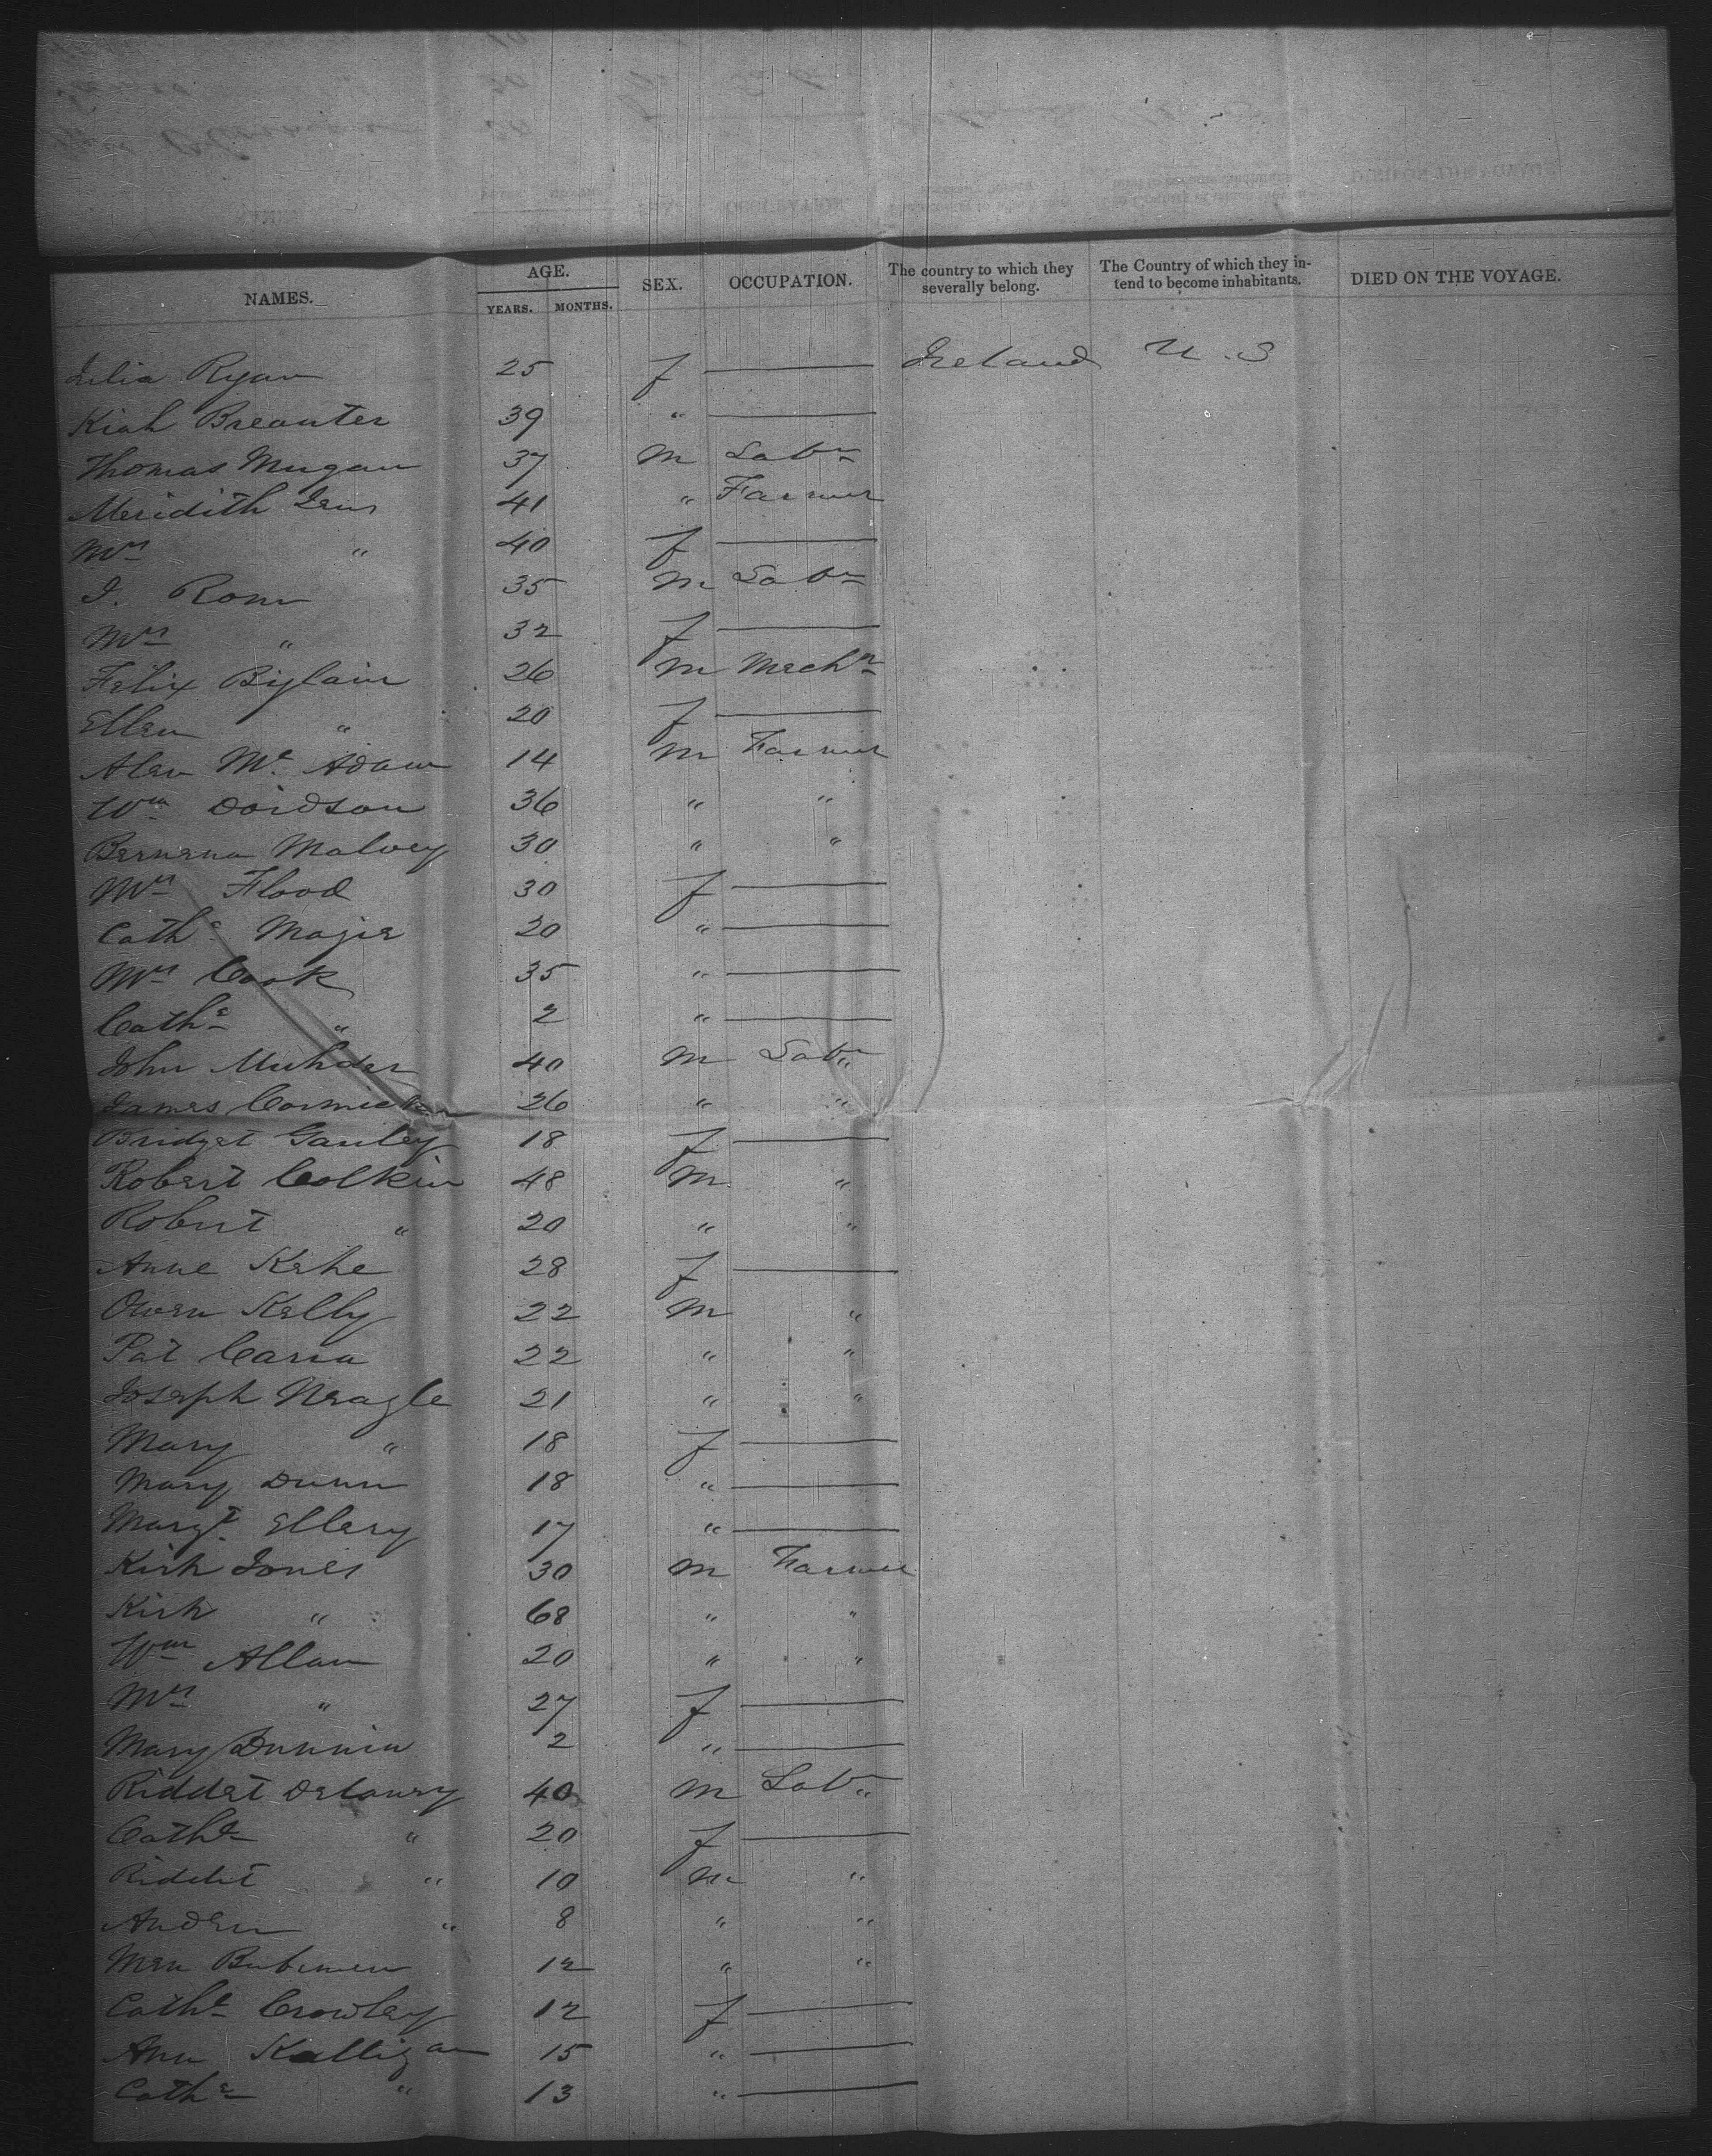 NAMES. AGE. SEX. OCCUPATION. The country to which they severally belong. The Country of which they intend to become inhabitants. DIED ON THE VOYAGE.
YEARS. MONTHS.
Julia Ryan 25 f — Ireland U.S
Kiah Breauter 39 " —
Thomas Mugan 37 m Labr
Meridith 41 " Farmer
Mrs " 40 f —
J. Rom 35 m Labr
Mrs " 32 f —
Felix Biglain 26 m Mechn
Ellen " 20 f —
Alen Mc Adam 14 m Farmer
Wm Doidson 36 " "
Malvey 30 " "
Mrs Flood 30 f —
Cathe Magie 20 " —
Mrs Cook 35 " —
Cathe " 2 " —
John 40 m Labr
James 26 " "
Bridget Ganley 18 f —
Robert Colkin 48 m "
Robert " 20 " "
Anne Kehe 28 f —
Owen Kelly 22 m "
Pat 22 " "
Joseph Neagle 21 " "
Mary " 18 f —
Mary Dunn 18 " —
Margt Ellery 17 " —
Kirk Jones 30 m Farmer
Kirk " 68 " "
Wm Allan 20 " "
Mrs " 27 f —
Mary Dunnin 2 " —
Riddet Delaney 40 m Labr
Cathe " 20 f —
Riddet " 10 m "
Andrew " 8 " "
12 " "
Cathe Crowley 12 f —
Ann Kalligan 15 " —
Cathe " 13 " —